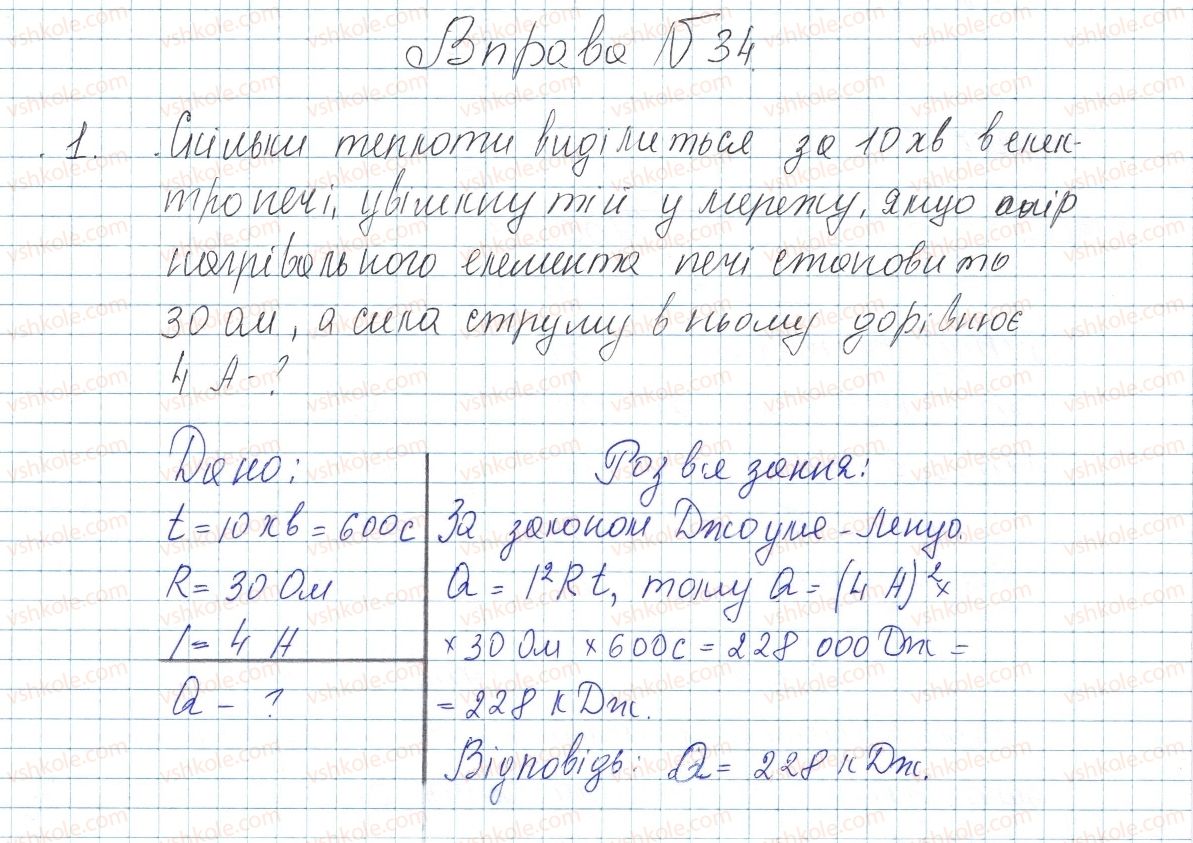 Вправа №34.
1. Скільки теплоти виділиться за 10 хв в елек-
тропечі, увімкнутій у мережу, якщо опір
нагрівального елемента печі становить
30 Ом, а сила струму в ньому дорівнює
4 А - ?
Дано:
t = 10 хв = 600с
R = 30 Ом
I = 4 А
Q - ?
Розв'язання:
За законом Джоуля-Ленца.
Q = I²Rt, тому Q = (4 А)² ×
× 30 Ом × 600с = 228 000 Дж =
= 228 кДж.
Відповідь: Q = 228 кДж.
vshkole.com